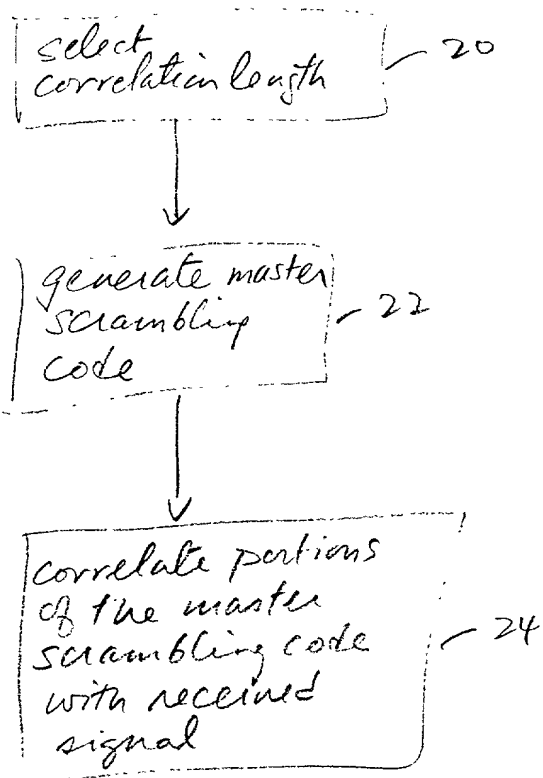 select
correlation length
20
generate master
scrambling
code
22
correlate portions
of the master
scrambling code
with received
signal
24